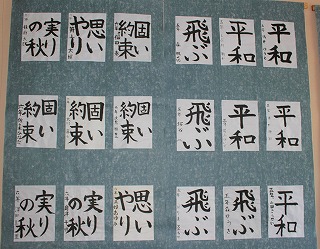 平和
平和
飛ぶ
固い
約束
思い
やり
実り
の秋
平和
平和
飛ぶ
固い
約束
固い
約束
固い
約束
平和
飛ぶ
飛ぶ
思い
やり
実り
の秋
実り
の秋